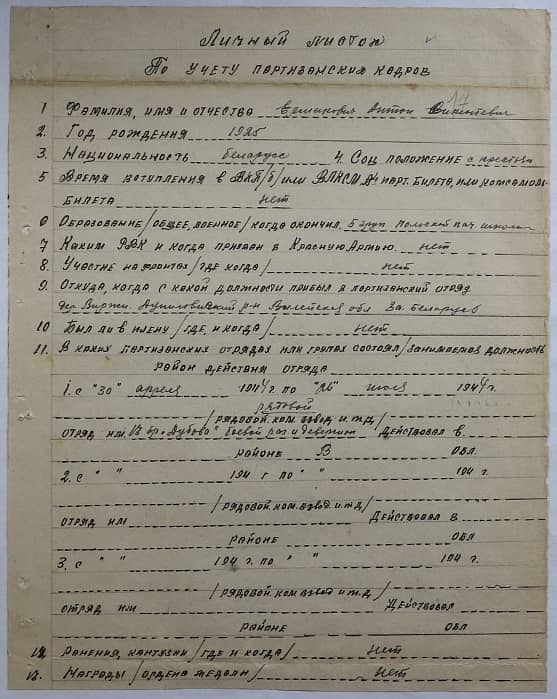 Личный листок
По учету партизанских кадров
17
1 Фамилия, имя и отчества Ермакович Антон Викентевич
2. Год рождения 1925
3. Национальность беларусс 4. Соц положение с крестьян
5 Время вступления в ВКП/б/или ВЛКСМ, № парт. билета, или комсамоль-
билета нет
6 Образование /общее, военное/ когда окончил, 5 груп польской нач школы
7 Каким РВК и когда призван в Красную Армию. нет
8. Участие на фронтах /где когда/ нет
9. Откуда, когда с какой должности прибыл в партизанский отряд
дер Вирки. р-н Вилейской обл За. Беларусь
10 Был ли в плену /где, и когда/ нет
11. В каких партизанских отрядах или групах состоял /занимаемая должность
район действия отряда
1. с "30" апреля 1944 г. по "16" июля 1944 г.
рятовой
/рядовой. ком. взвод и. т. д/
отряд им. бр. "Дубова" боевой раз и деверкион Действовал в
районе В обл.
2. с " " 194 г по " " 194 г.
/рядовой. ком. взвод. и. т. д/
отряд им Действовал в
районе обл
3. с " " 194 г. по " " 194 г.
/рядовой. ком. взвод и. т. д/
отряд им Действовал
районе обл
12. Ранения, кантузии /где и когда/ нет
13. Награды /ордена медали/ нет